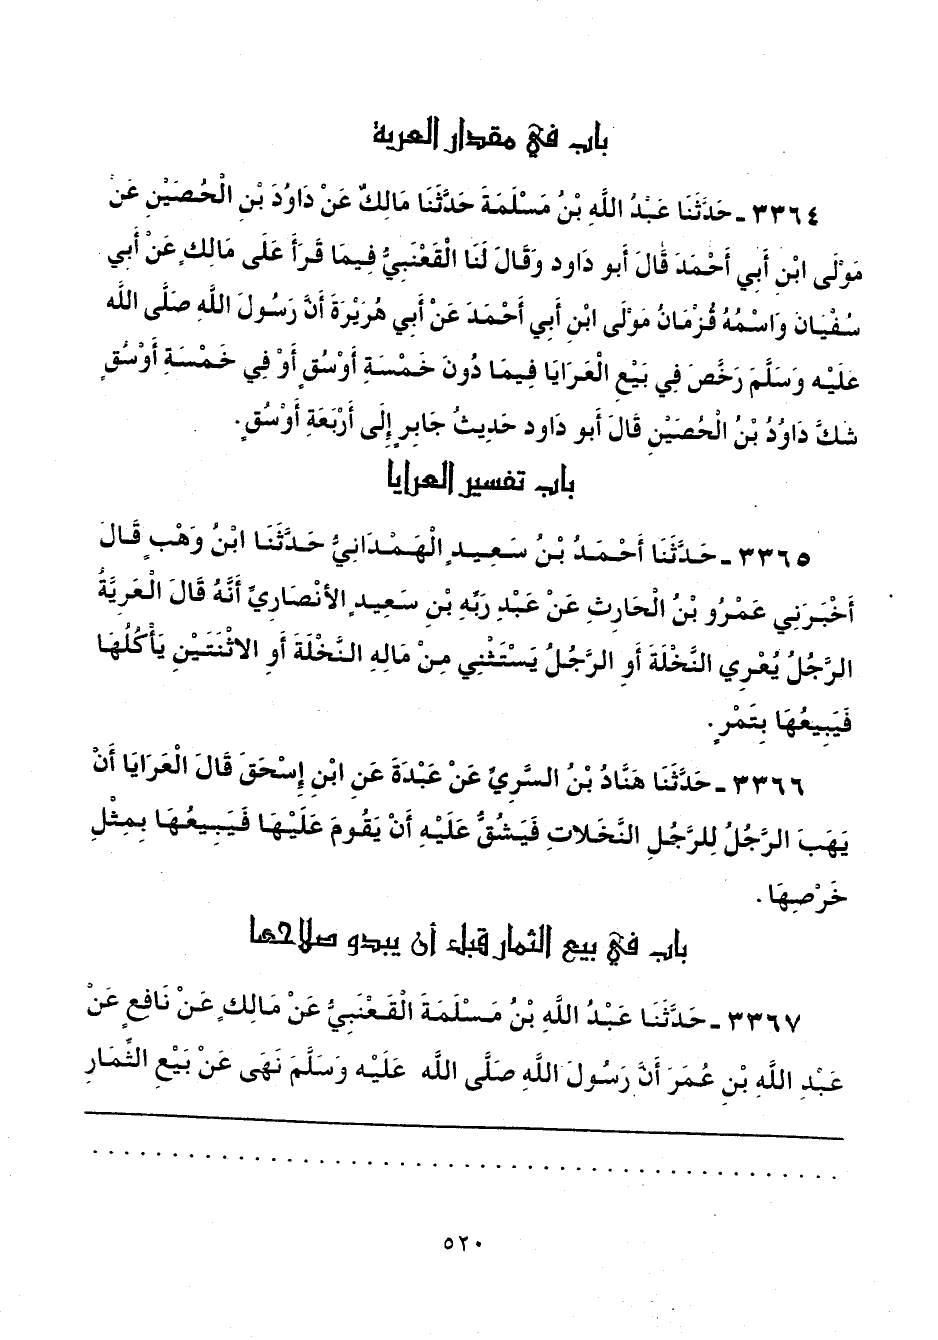 باب في مقدار العرية
٣٣٦٤ ـ حَدَّثَنَا عَبْدُ اللَّهِ بْنُ مَسْلَمَةَ حَدَّثَنَا مَالِكٌ عَنْ دَاوُدَ بْنِ الْحُصَيْنِ عَنْ
مَوْلَى ابْنِ أَبِي أَحْمَدَ قَالَ أبو دَاود وَقَالَ لَنَا الْقَعْنَبِيُّ فِيمَا قَرَأَ عَلَى مَالِكٍ عَنْ أَبِي
سُفْيَانَ وَاسْمُهُ قُزْمَانُ مَوْلَى ابْنِ أَبِي أَحْمَدَ عَنْ أَبِي هُرَيْرَةَ أَنَّ رَسُولَ اللَّهِ صَلَّى اللَّه
عَلَيْهِ وَسَلَّمَ رَخَّصَ فِي بَيْعِ الْعَرَايَا فِيمَا دُونَ خَمْسَةِ أَوْسُقٍ أَوْ فِي خَمْسَةِ أَوْسُقٍ
شَكَّ دَاوُدُ بْنُ الْحُصَيْنِ قَالَ أبو دَاود حَدِيثُ جَابِرٍ إِلَى أَرْبَعَةِ أَوْسُقٍ.
باب تفسير العرايا
٣٣٦٥ ـ حَدَّثَنَا أَحْمَدُ بْنُ سَعِيدٍ الْهَمْدَانِيُّ حَدَّثَنَا ابْنُ وَهْبٍ قَالَ
أَخْبَرَنِي عَمْرُو بْنُ الْحَارِثِ عَنْ عَبْدِ رَبِّهِ بْنِ سَعِيدٍ الأَنْصَارِيِّ أَنَّهُ قَالَ الْعَرِيَّةُ
الرَّجُلُ يُعْرِي النَّخْلَةَ أَوِ الرَّجُلُ يَسْتَثْنِي مِنْ مَالِهِ النَّخْلَةَ أَوِ الاثْنَتَيْنِ يَأْكُلُهَا
فَيَبِيعُهَا بِتَمْرٍ.
٣٣٦٦ ـ حَدَّثَنَا هَنَّادُ بْنُ السَّرِيِّ عَنْ عَبْدَةَ عَنِ ابْنِ إِسْحَقَ قَالَ الْعَرَايَا أَنْ
يَهَبَ الرَّجُلُ لِلرَّجُلِ النَّخَلاتِ فَيَشُقُّ عَلَيْهِ أَنْ يَقُومَ عَلَيْهَا فَيَبِيعُهَا بِمِثْلِ
خَرْصِهَا.
باب في بيع الثمار قبل أن يبدو صلاحها
٣٣٦٧ ـ حَدَّثَنَا عَبْدُ اللَّهِ بْنُ مَسْلَمَةَ الْقَعْنَبِيُّ عَنْ مَالِكٍ عَنْ نَافِعٍ عَنْ
عَبْدِ اللَّهِ بْنِ عُمَرَ أَنَّ رَسُولَ اللَّهِ صَلَّى اللَّه عَلَيْهِ وَسَلَّمَ نَهَى عَنْ بَيْعِ الثِّمَارِ
٥٢٠